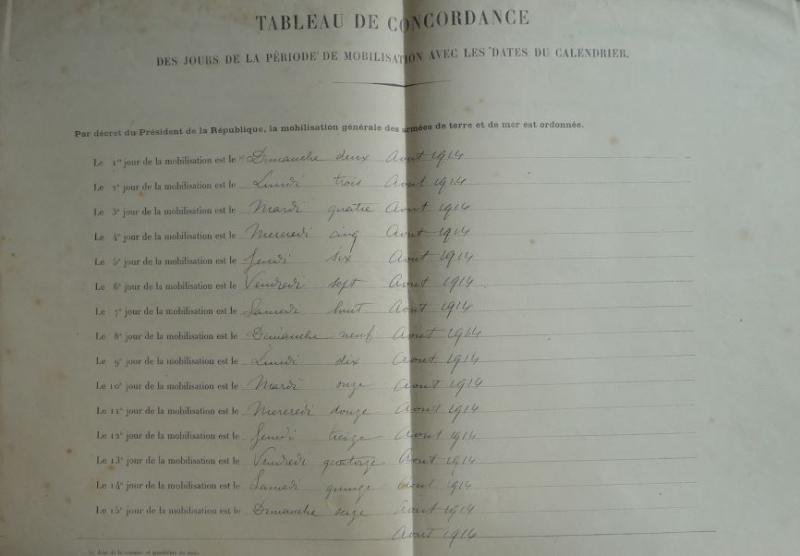 TABLEAU DE CONCORDANCE
DES JOURS DE LA PÉRIODE DE MOBILISATION AVEC LES DATES DU CALENDRIER.
Par décret du Président de la République, la mobilisation générale des armées de terre et de mer est ordonnée.
Le 1er jour de la mobilisation est le Dimanche deux Aout 1914
Le 2e jour de la mobilisation est le Lundi trois Aout 1914
Le 3e jour de la mobilisation est le Mardi quatre Aout 1914
Le 4e jour de la mobilisation est le Mercredi cinq Aout 1914
Le 5e jour de la mobilisation est le Jeudi six Aout 1914
Le 6e jour de la mobilisation est le Vendredi sept Aout 1914
Le 7e jour de la mobilisation est le Samedi huit Aout 1914
Le 8e jour de la mobilisation est le Dimanche neuf Aout 1914
Le 9e jour de la mobilisation est le Lundi dix Aout 1914
Le 10e jour de la mobilisation est le Mardi onze Aout 1914
Le 11e jour de la mobilisation est le Mercredi douze Aout 1914
Le 12e jour de la mobilisation est le Jeudi treize Aout 1914
Le 13e jour de la mobilisation est le Vendredi quatorze Aout 1914
Le 14e jour de la mobilisation est le Samedi quinze Aout 1914
Le 15e jour de la mobilisation est le Dimanche seize Aout 1914
Aout 1914